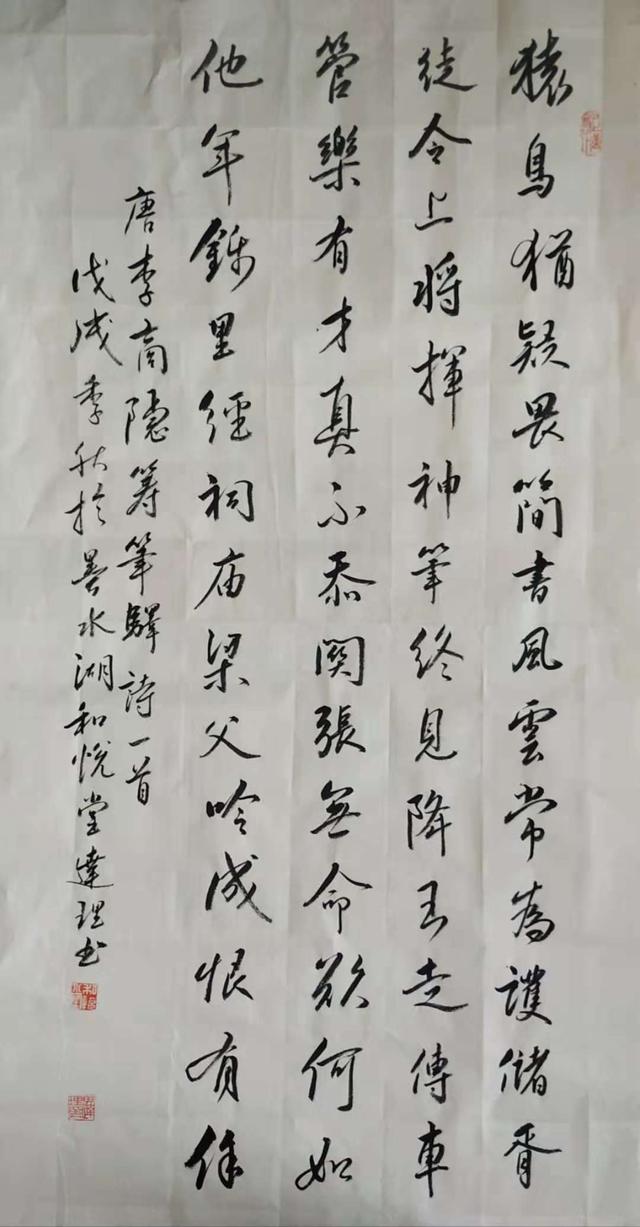 猿鳥猶疑畏簡書風雲常為護儲胥
徒令上將揮神筆終見降王走傳車
管樂有才真不忝関張無命欲何如
他年錦里經祠庙梁父吟成恨有余
唐李商隱筹筆驛詩一首
戊戌季秋於墨水湖和悅堂達理书